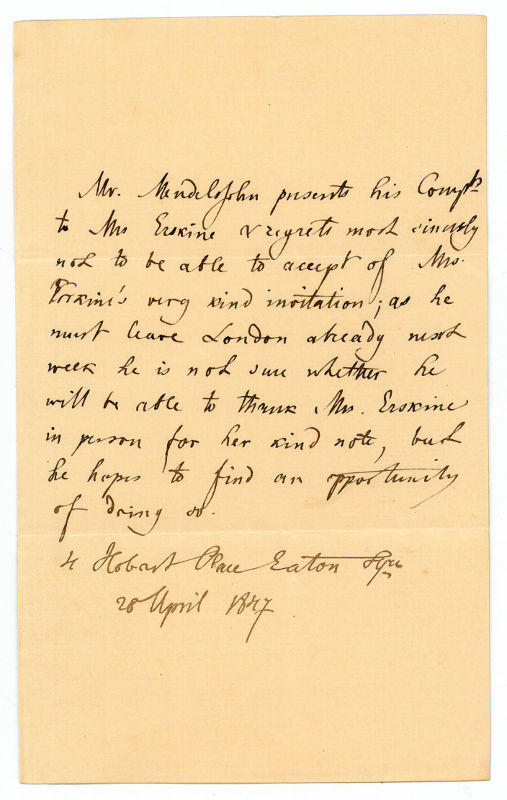 Mr. Mendelssohn presents his Compts
to Mrs Erskine & regrets most sincerely
not to be able to accept of Mrs.
Erskine's very kind invitation; as he
must leave London already next
week he is not sure whether he
will be able to thank Mrs. Erskine
in person for her kind note, but
he hopes to find an opportunity
of doing so.
4 Hobart Place Eaton Sqre
28 April 1847